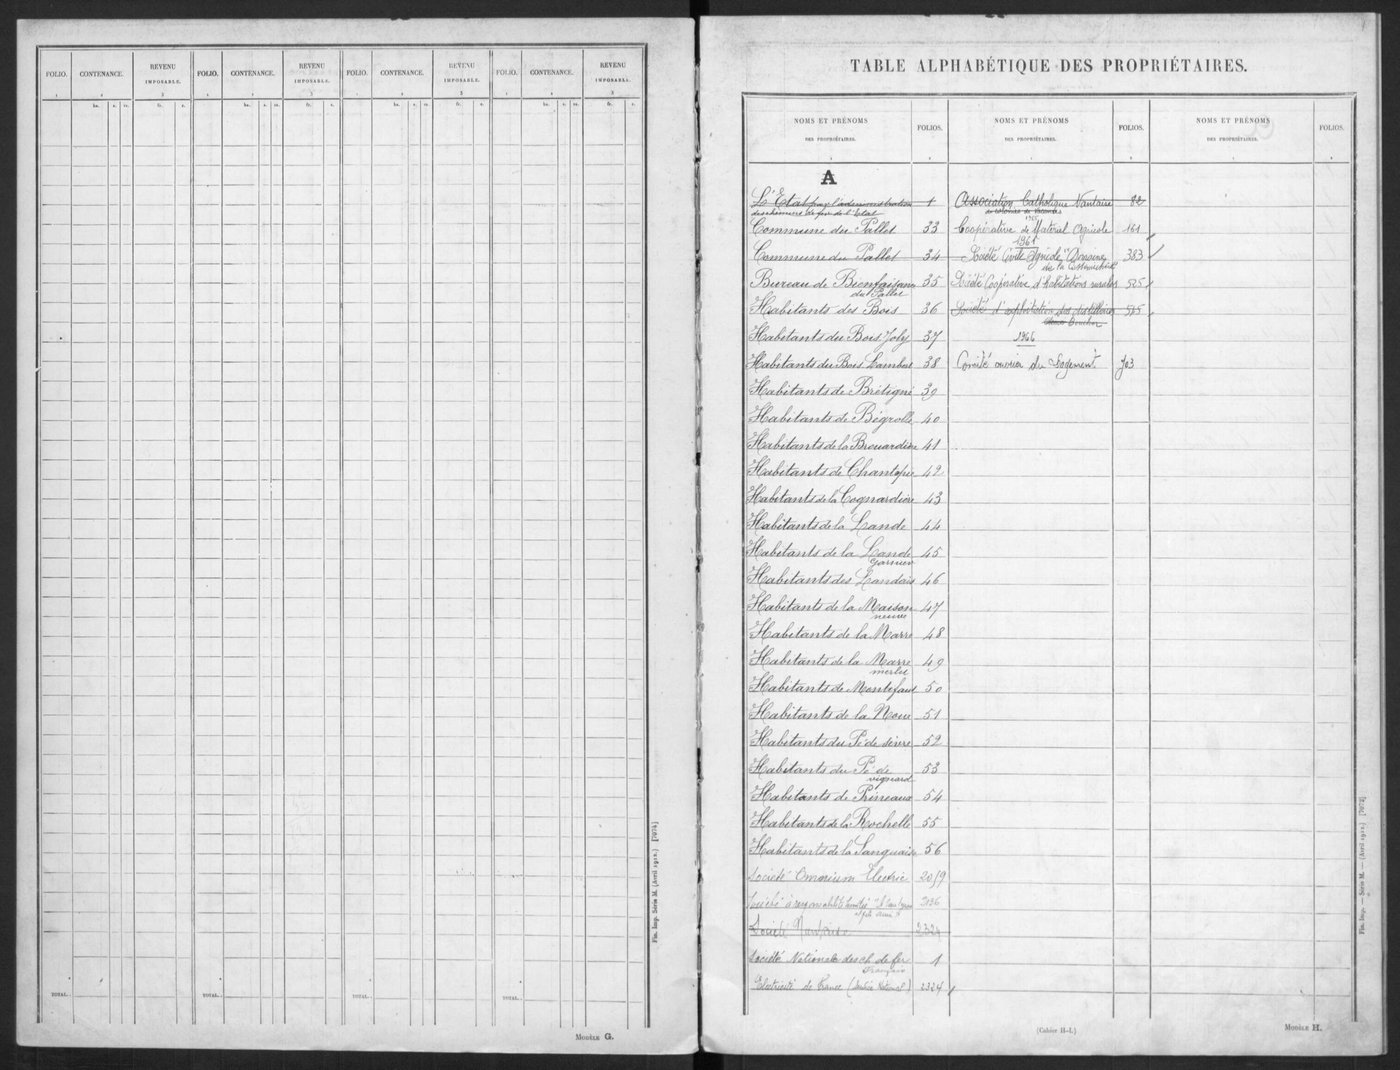 FOLIO. CONTENANCE. REVENU IMPOSABLE. FOLIO. CONTENANCE. REVENU IMPOSABLE. FOLIO. CONTENANCE. REVENU IMPOSABLE. FOLIO. CONTENANCE. REVENU IMPOSABLE.
TOTAL. TOTAL. TOTAL. TOTAL.
Fin. Imp. Série M. (Avril 1912.) [7074]
MODÈLE G.
TABLE ALPHABÉTIQUE DES PROPRIÉTAIRES.
NOMS ET PRÉNOMS DES PROPRIÉTAIRES. FOLIOS. NOMS ET PRÉNOMS DES PROPRIÉTAIRES. FOLIOS. NOMS ET PRÉNOMS DES PROPRIÉTAIRES. FOLIOS.
A
L'Etat pour l'administration 1
des chemins de fer de l'Etat
Commune du Pallet 33
Commune du Pallet 34
Bureau de Bienfaisance 35
du Pallet
Habitants des Bois 36
Habitants du Bois Joly 37
Habitants du Bois Lambert 38
Habitants de Brétigné 39
Habitants de Bégrolle 40
Habitants de la Brouardière 41
Habitants de Chantepie 42
Habitants de la Cognardière 43
Habitants de la Lande 44
Habitants de la Lande 45
Garnier
Habitants des Landais 46
Habitants de la Maison 47
neuve
Habitants de la Marre 48
Habitants de la Marre 49
merlet
Habitants de Montifaut 50
Habitants de la Noue 51
Habitants du Pé de sèvre 52
Habitants du Pé de 53
vignard
Habitants de Prineaux 54
Habitants de la Rochelle 55
Habitants de la Sanguaire 56
Société Omnium Electric 2019
Société à responsabilité limitée 2036
Société Nantaise 2324
Société Nationale des ch. de fer 1
Français
Electricité de France (Service National) 2324
Association Catholique Nantaise 82
de colonies de Vacances
Coopérative de Matériel Agricole 161
1961
Société Civile Agricole "Domaine 383
de la
Société Coopérative d'habitations rurales 525
Société d'exploitation des distilleries 565
Boucher
1966
Comité ouvrier du Logement 703
(Cahier H-L)
MODÈLE H.
Fin. Imp. — Série M. — (Avril 1912.) [7072]